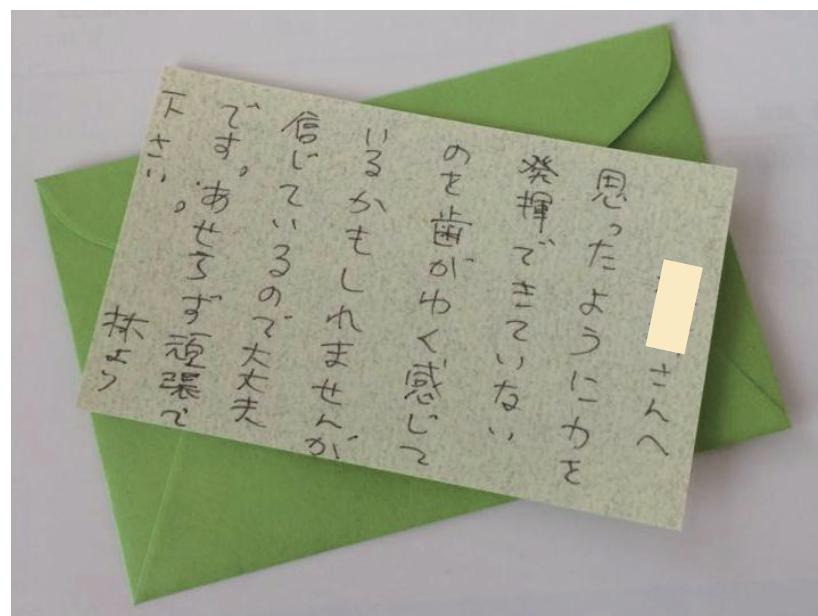 さんへ
思ったように力を
発揮できていない
のを歯がゆく感じて
いるかもしれませんが
信じているので大丈夫
です。あせらず頑張て
下さい。
林より